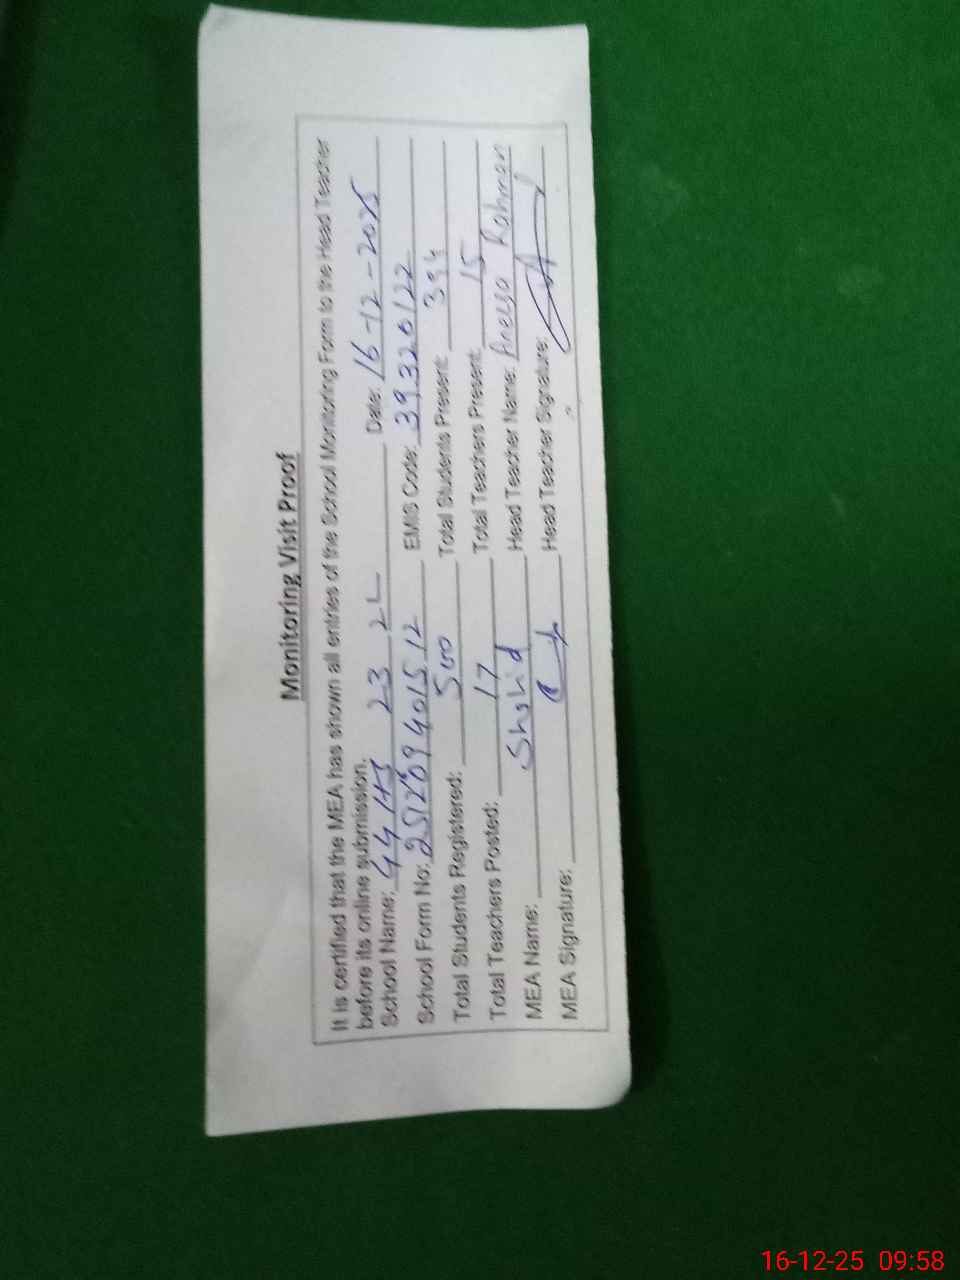 Monitoring Visit Proof
It is certified that the MEA has shown all entries of the School Monitoring Form to the Head Teacher
before its online submission.
School Name: 44 23 2L Date: 16-12-2025
School Form No: 251209401512 EMIS Code: 39320122
Total Students Registered: 500 Total Students Present: 394
Total Teachers Posted: 17 Total Teachers Present: 15
MEA Name: Shahid Head Teacher Name: Rahman
MEA Signature: Head Teacher Signature:
16-12-25 09:58